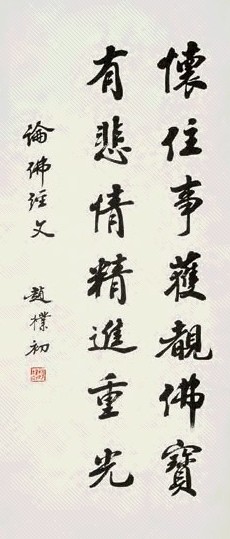 懷住事獲覩佛寶
有悲情精進重光
論佛經文
趙樸初